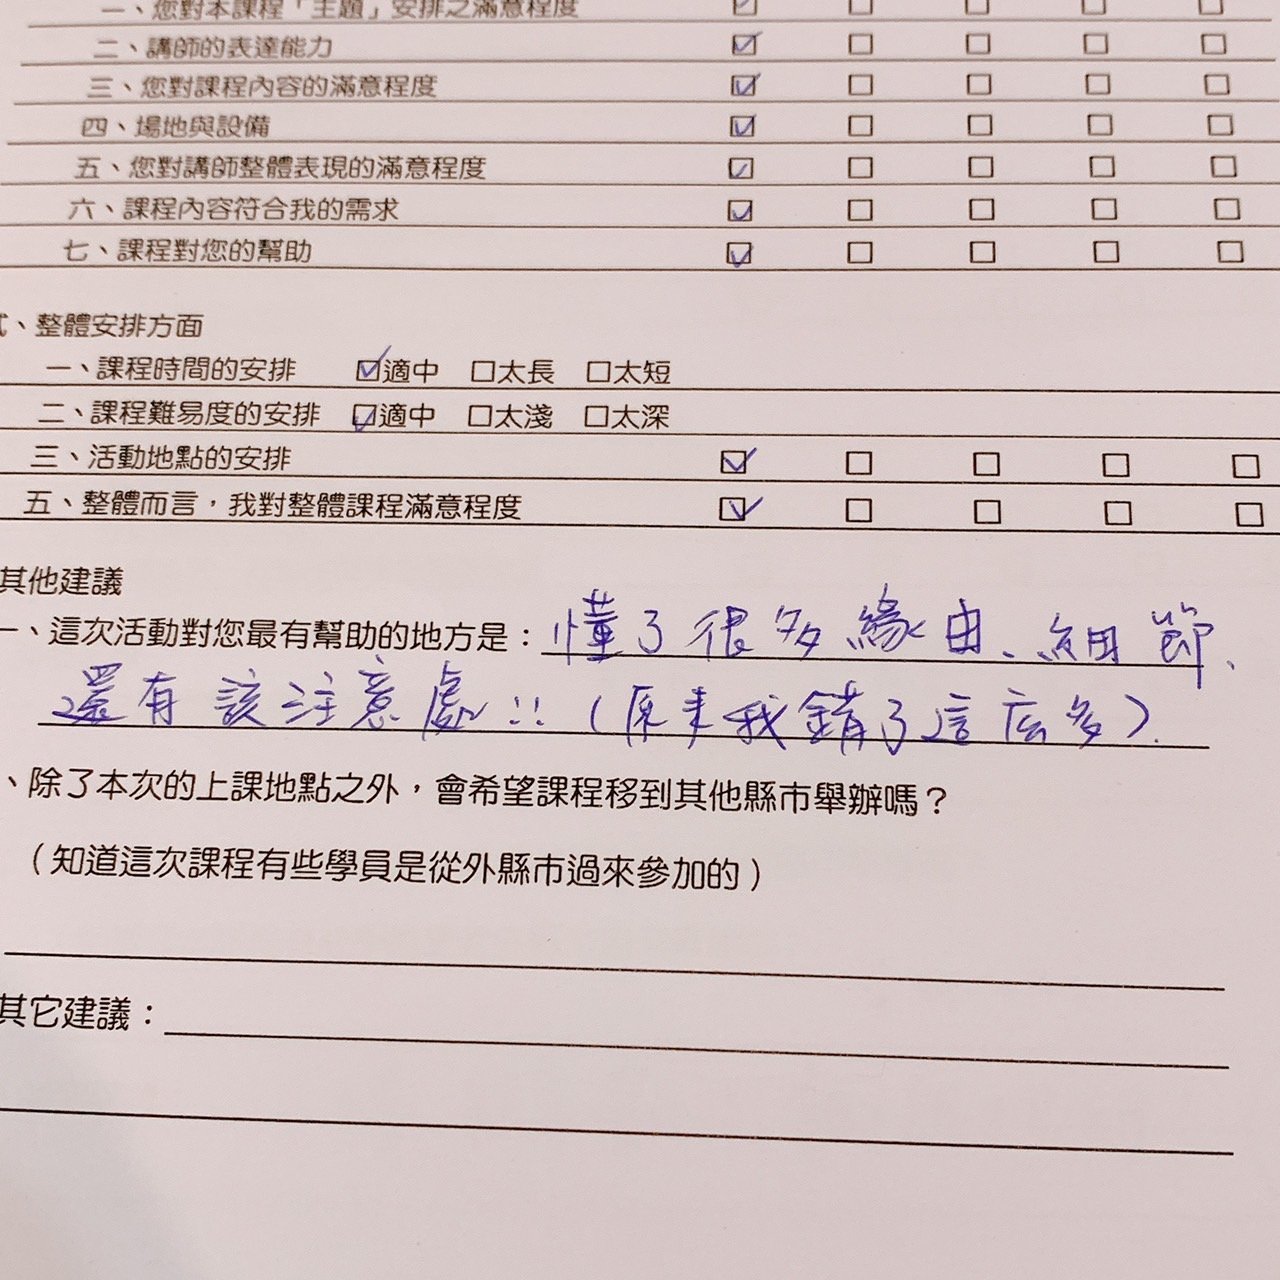 一、您對本課程「主題」安排之滿意程度 ☑ □ □ □ □
二、講師的表達能力 ☑ □ □ □ □
三、您對課程內容的滿意程度 ☑ □ □ □ □
四、場地與設備 ☑ □ □ □ □
五、您對講師整體表現的滿意程度 ☑ □ □ □ □
六、課程內容符合我的需求 ☑ □ □ □ □
七、課程對您的幫助 ☑ □ □ □ □
貳、整體安排方面
一、課程時間的安排 ☑適中 □太長 □太短
二、課程難易度的安排 ☑適中 □太淺 □太深
三、活動地點的安排 ☑ □ □ □ □
五、整體而言，我對整體課程滿意程度 ☑ □ □ □ □
其他建議
一、這次活動對您最有幫助的地方是：懂了很多緣由、細節、
還有該注意處!!（原來我錯了這麼多）.
、除了本次的上課地點之外，會希望課程移到其他縣市舉辦嗎？
（知道這次課程有些學員是從外縣市過來參加的）
其它建議：